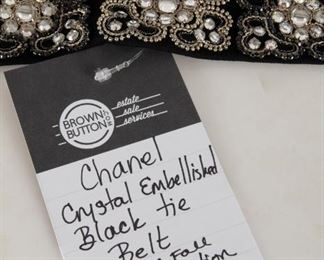 BROWN
BUTTON
.COM
estate
sale
services
Chanel
Crystal Embellished
Black tie
Belt
Fall